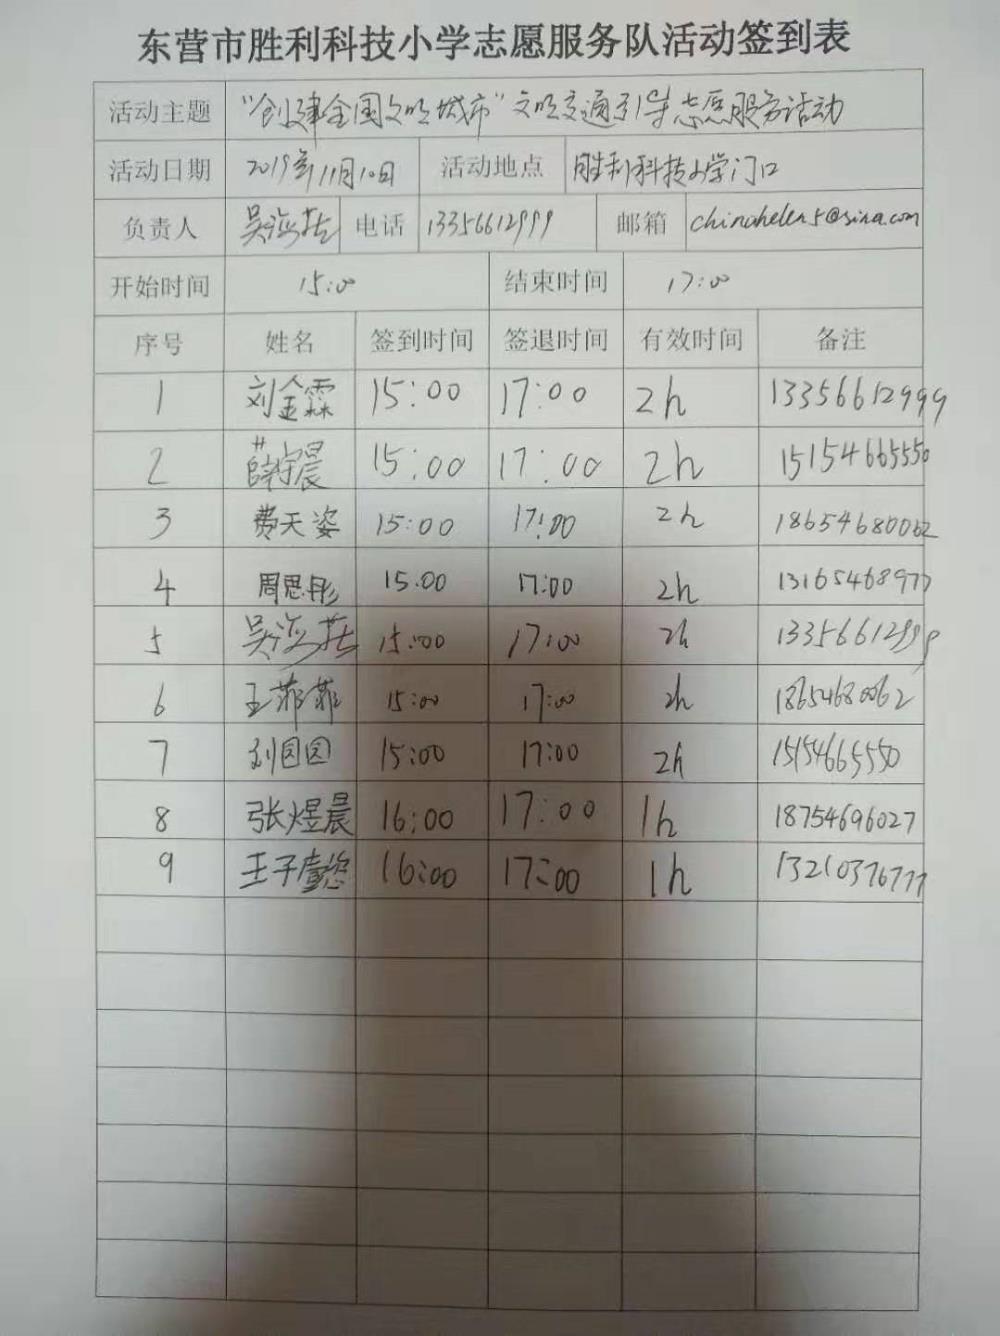 东营市胜利科技小学志愿服务队活动签到表
活动主题 “创建全国文明城市”文明交通引导志愿服务活动
活动日期 2019年11月10日 活动地点 胜利科技小学门口
负责人 吴海燕 电话 13356612999 邮箱 chinahelen5@sina.com
开始时间 15:00 结束时间 17:00
序号 姓名 签到时间 签退时间 有效时间 备注
1 刘金霖 15:00 17:00 2h 13356612999
2 薛宇晨 15:00 17:00 2h 15154665550
3 费天姿 15:00 17:00 2h 18654680062
4 周思彤 15:00 17:00 2h 13165468977
5 吴海燕 15:00 17:00 2h 13356612999
6 王菲菲 15:00 17:00 2h 18654680062
7 刘园园 15:00 17:00 2h 15154665550
8 张煜晨 16:00 17:00 1h 18754696027
9 王子 16:00 17:00 1h 13210376777